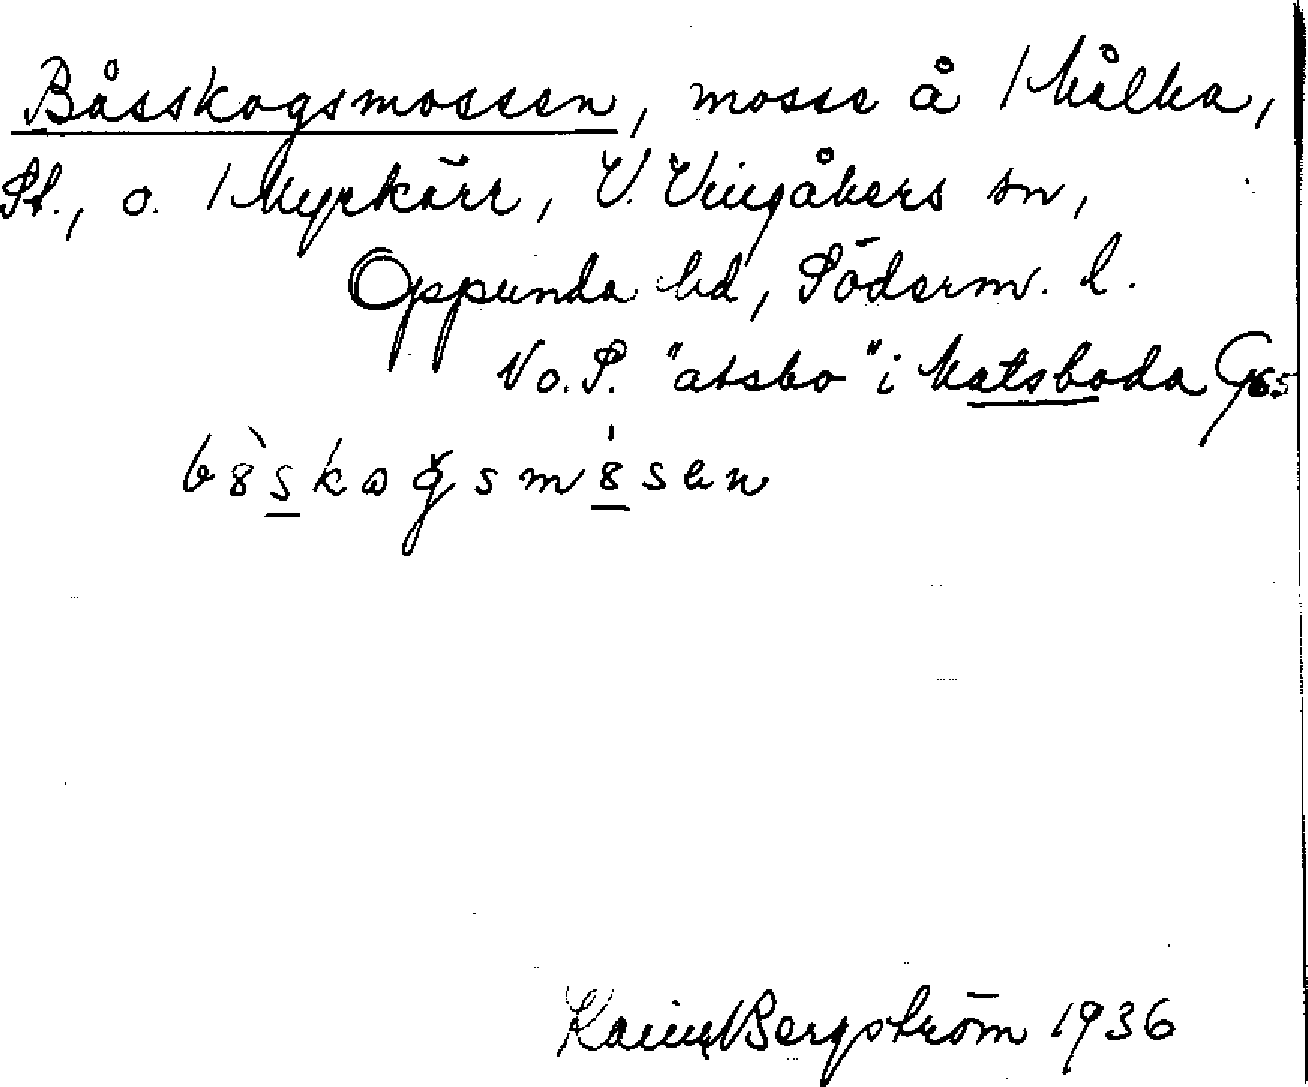 Båsskogsmossen, mosse å /Målka,
St., o. /Myrkärr, V. Vingåkers sn,
Oppunda hd, Söderm. l.
No. S. "atsbo" i Matsboda G65
b8̀skogsm8́sen
Karin Bergström 1936